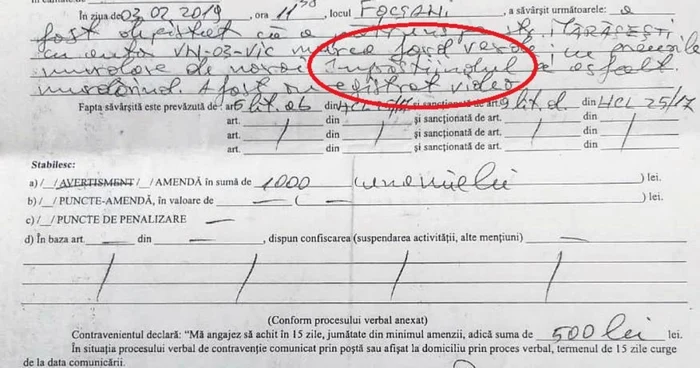 În ziua de 03 02 2019, ora 11 30, locul FOCȘANI, a săvârșit următoarele: a
fost depistat că a Mărășești
cu auto VN-03-VIC marca ford
murdare de noroi împrăștiindul asfalt
murdărind. A fost înregistrat video
Fapta săvârșită este prevăzută de: art 5 lit. ab din HCL și sancționată de art. 9 lit. d. din HCL 25/17
art. / din / și sancționată de art. / din /
art. din și sancționată de art. din
art. din și sancționată de art. din
Stabilesc:
a) /_/ AVERTISMENT /_/ AMENDĂ în sumă de 1000 unamielei) lei.
b) /_/ PUNCTE-AMENDĂ, în valoare de — ( — ) lei.
c) /_/ PUNCTE DE PENALIZARE —
d) În baza art. — din —, dispun confiscarea (suspendarea activității, alte mențiuni) —
/ / / /
(Conform procesului verbal anexat)
Contravenientul declară: "Mă angajez să achit în 15 zile, jumătate din minimul amenzii, adică suma de 500 lei lei.
În situația procesului verbal de contravenție comunicat prin poștă sau afișat la domiciliu prin proces verbal, termenul de 15 zile curge
de la data comunicării.